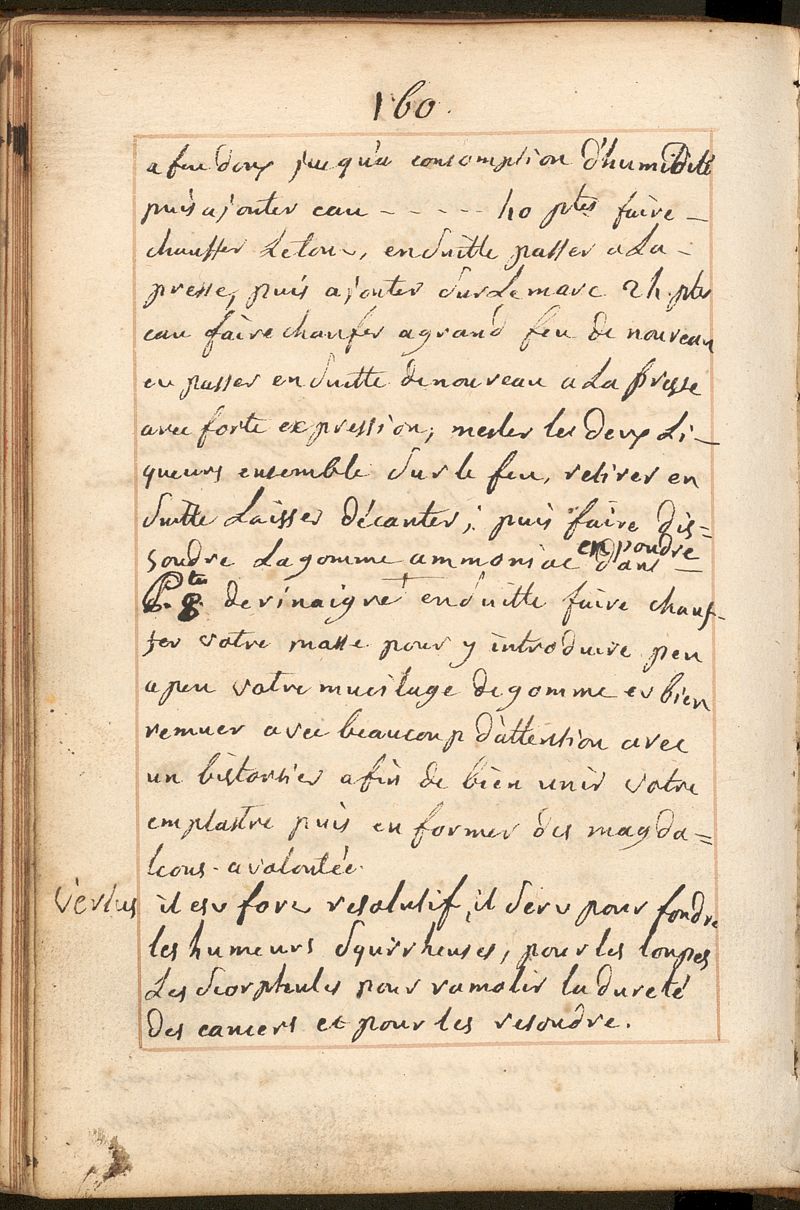 160.
a feu doux jusqu'a consomption d'humidité
puis ajouter eau - - - - - 40 ptes faire —
chauffer Le tout, ensuitte passer a La -
presse, puis ajouter sur Le marc 24. ptes
eau faire chaufer a grand feu de nouveau
et passer ensuitte de nouveau a La presse
avec forte expression, mesler les deux Li-
queurs ensemble sur le feu, retirer en
suitte Laisser décanter; puis faire dis=
soudre La gomme ammoniac en poudre dans —
Ptes 8. de vinaigre † ensuitte faire chauf-
fer votre masse pour y introduire peu
a peu votre mucilage de gomme et bien
remuer avec beaucoup d'attention avec
un bistortier afin de bien unir votre
emplastre puis en former des magda=
leons. a volontée.
Vertus il est fort resolutif, il sert pour fondre
les humeurs squirrheuses, pour les loupes
Les scorphules pour ramolir la dureté
des cancers et pour les resoudre.